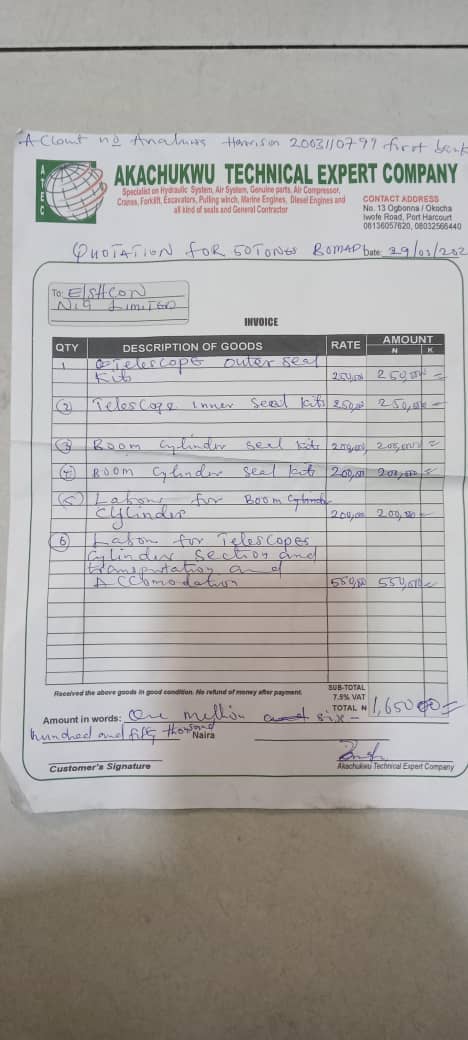 Account no Anabuwa Harrison 2003110799 first bank
ATEC
AKACHUKWU TECHNICAL EXPERT COMPANY
Specialist on Hydraulic System, Air System, Genuine parts, Air Compressor,
Cranes, Forklift, Excavators, Pulling winch, Marine Engines, Diesel Engines and
all kind of seals and General Contractor
CONTACT ADDRESS
No. 13 Ogbonna / Okocha
Iwofe Road, Port Harcourt
08136057620, 08032566440
QUOTATION FOR 50TONES BOMAP Date: 29/03/202
To: EISHCON
NIG LIMITED
INVOICE
QTY DESCRIPTION OF GOODS RATE AMOUNT
N K
1 Telescope outer seal
kits 250,000 250,000 =
2 Telescope inner seal kits 250,000 250,000 =
3 Boom cylinder seal kits 200,000 200,000 =
4 Boom cylinder seal kits 200,000 200,000 =
5 Labour for Boom
Cylinder 200,000 200,000 =
6 Labour for Telescopes
cylinder section and
transportation and
Accomodation 550,000 550,000 =
Received the above goods in good condition. No refund of money after payment.
SUB-TOTAL
7.5% VAT
TOTAL N 1,650000=
Amount in words: One million six
hundred and fifty thousand Naira
Customer's Signature
Akachukwu Technical Expert Company